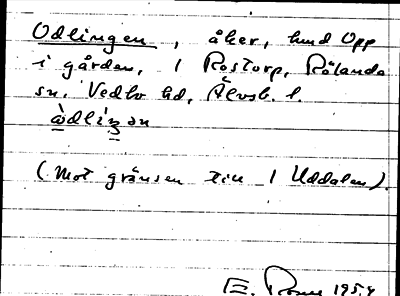 Odlingen, åker, hund Opp
i gården, 1 Rostorp, Rölanda
sn. Vedbo hd, Älvsb. l.
òdlíŋən
(Mot gränsen till 1 Uddalen).
E. 1954